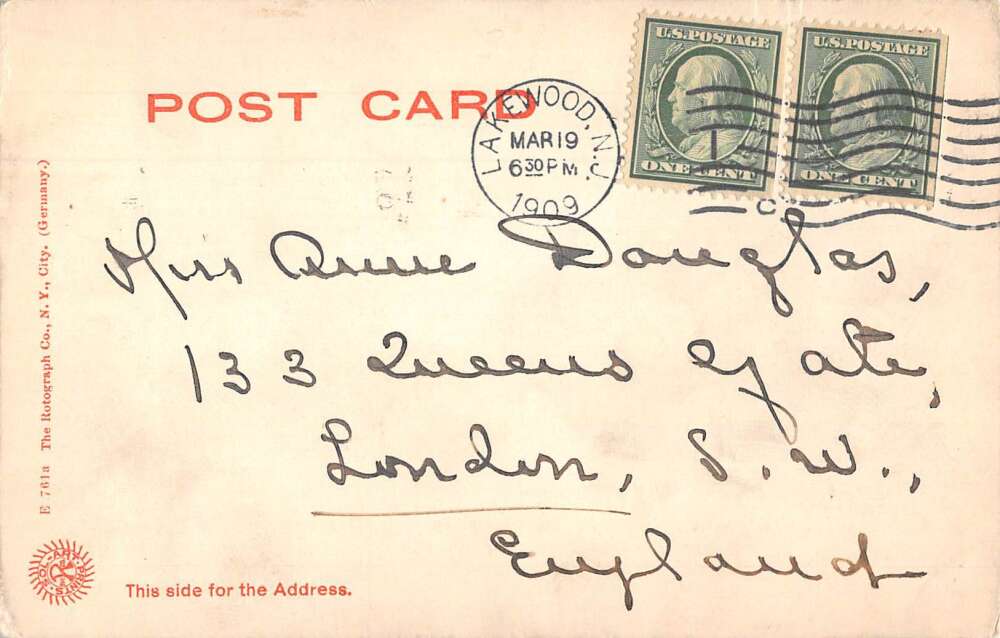 POST CARD
U.S.POSTAGE
ONE CENT
U.S.POSTAGE
ONE CENT
LAKEWOOD, N.J.
MAR 19
6 30 PM
1909
Miss Anne Douglas,
133 Queens Gate,
London, S.W.,
England
E 761a The Rotograph Co., N. Y., City. (Germany.)
SOL-ART PRINTS
This side for the Address.